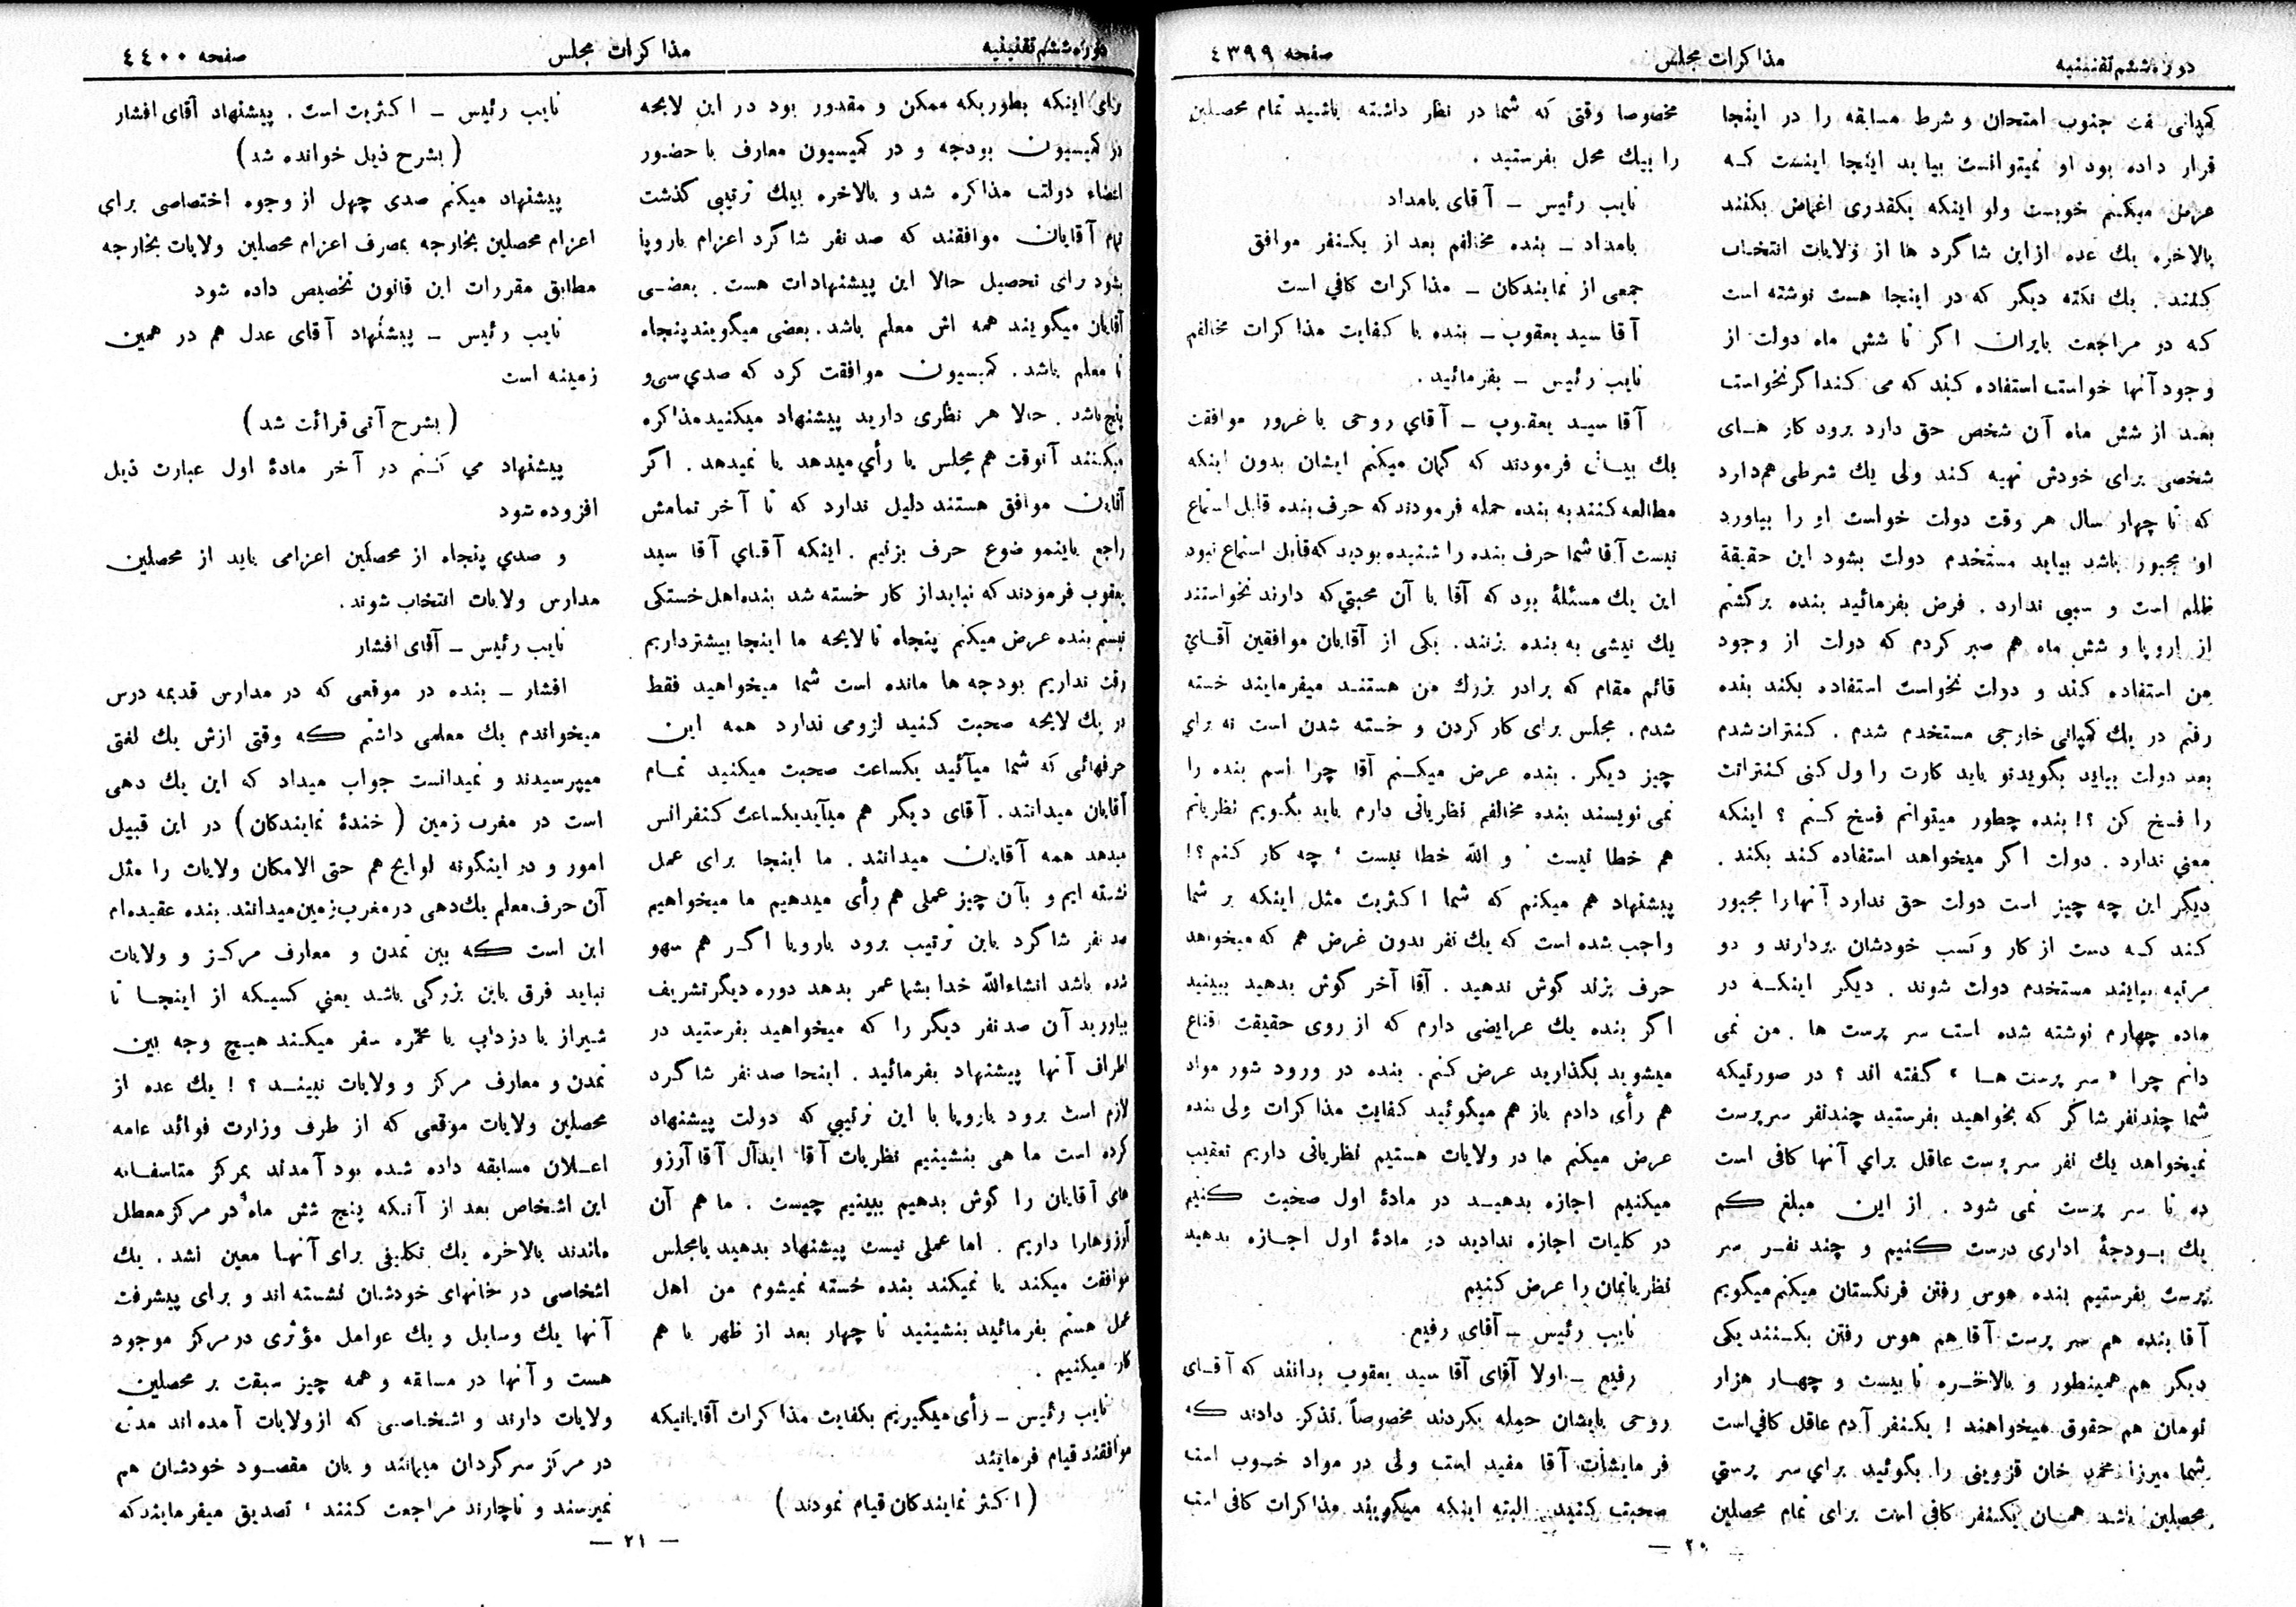 دوره ششم تقنینیه
مذاکرات مجلس
صفحه ٤٣٩٩
کمپانی نفت جنوب امتحان و شرط مسابقه را در اینجا
قرار داده بود او نمیتوانست بیاید اینجا اینست که
عرض میکنم خوبست ولو اینکه یکقدری اغماض بکنند
بالاخره یك عده ازاین شاگرد ها از ولایات انتخاب
کنند . یك نکته دیگر که در اینجا هست نوشته است
که در مراجعت بایران اگر تا شش ماه دولت از
وجود آنها خواست استفاده کند که می کند اگر نخواست
بعد از شش ماه آن شخص حق دارد برود کار های
شخصی برای خودش تهیه کند ولی یك شرطی هم دارد
که تا چهار سال هر وقت دولت خواست او را بیاورد
او مجبور باشد بیاید مستخدم دولت بشود این حقیقة
ظلم است و سببی ندارد . فرض بفرمائید بنده برگشتم
از اروپا و شش ماه هم صبر کردم که دولت از وجود
من استفاده کند و دولت نخواست استفاده بکند بنده
رفتم در یك کمپانی خارجی مستخدم شدم . کنترات شدم
بعد دولت بیاید بگوید تو باید کارت را ول کنی کنترانت
را فسخ کن ؟! بنده چطور میتوانم فسخ کنم ؟ اینکه
معنی ندارد . دولت اگر میخواهد استفاده کند بکند .
دیگر این چه چیز است دولت حق ندارد آنها را مجبور
کند که دست از کار و کسب خودشان بردارند و دو
مرتبه بیایند مستخدم دولت شوند . دیگر اینکه در
ماده چهارم نوشته شده است سر پرست ها . من نمی
دانم چرا « سر پرست ها » گفته اند ؟ در صورتیکه
شما چند نفر شاگر که بخواهید بفرستید چند نفر سرپرست
نمیخواهد یك نفر سر پرست عاقل برای آنها کافی است
ده تا سر پرست نمی شود . از این مبلغ کم
یك بودجهٔ اداری درست کنیم و چند نفر سر
پرست بفرستیم بنده هوس رفتن فرنگستان میکنم میگویم
آقا بنده هم سر پرست آقا هم هوس رفتن بکنند یکی
دیگر هم همینطور و بالاخره تا بیست و چهار هزار
تومان هم حقوق میخواهند ! یکنفر آدم عاقل کافی است
شما میرزا محمد خان قزوینی را بگوئید برای سر پرستی
محصلین باشد همان یکنفر کافی است برای تمام محصلین
مخصوصا وقتی که شما در نظر داشته باشید تمام محصلین
را بیك محل بفرستید .
نایب رئیس ــ آقای بامداد
بامداد ــ بنده مخالفم بعد از یکنفر موافق
جمعی از نمایندکان ــ مذاکرات کافی است
آقا سید یعقوب ــ بنده با کفایت مذاکرات مخالفم
نایب رئیس ــ بفرمائید .
آقا سید یعقوب ــ آقای روحی با غرور موافقت
یك بیانی فرمودند که گمان میکنم ایشان بدون اینکه
مطالعه کنند به بنده حمله فرمودند که حرف بنده قابل استماع
نیست آقا شما حرف بنده را شنیده بودید که قابل استماع نبود
این یك مسئلهٔ بود که آقا با آن محبتی که دارند نخواستند
یك نیشی به بنده بزنند . یکی از آقایان موافقین آقای
قائم مقام که برادر بزرك من هستند میفرمایند خسته
شدم . مجلس برای کار کردن و خسته شدن است نه برای
چیز دیگر . بنده عرض میکنم آقا چرا اسم بنده را
نمی نویسند بنده مخالفم نظریاتی دارم باید بگویم نظریاتم
هم خطا نیست ' و الله خطا نیست ' چه کار کنم ؟!
پیشنهاد هم میکنم که شما اکثریت مثل اینکه بر شما
واجب شده است که یك نفر بدون غرض هم که میخواهد
حرف بزند گوش ندهید . آقا آخر گوش بدهید ببینید
اگر بنده یك عرایضی دارم که از روی حقیقت اقناع
میشوید بگذارید عرض کنم . بنده در ورود شور مواد
هم رأی دادم باز هم میگوئید کفایت مذاکرات ولی بنده
عرض میکنم ما در ولایات هستیم نظریاتی داریم تعقیب
میکنیم اجازه بدهید در مادهٔ اول صحبت کنیم
در کلیات اجازه ندادید در مادهٔ اول اجازه بدهید
نظریاتمان را عرض کنیم
نایب رئیس ــ آقای رفیع .
رفیع ــ اولا آقای آقا سید یعقوب بدانند که آقای
روحی بایشان حمله نکردند مخصوصاً تذکر دادند که
فرمایشات آقا مفید است ولی در مواد خوب است
صحبت کنید البته اینکه میگویند مذاکرات کافی است
ــ ٢٠ ــ
دوره ششم تقنینیه
مذاکرات مجلس
صفحه ٤٤٠٠
برای اینکه بطوریکه ممکن و مقدور بود در این لایحه
در کمیسیون بودجه و در کمیسیون معارف با حضور
اعضاء دولت مذاکره شد و بالاخره بیك ترتیبی گذشت
تمام آقایان موافقند که صد نفر شاگرد اعزام باروپا
بشود برای تحصیل حالا این پیشنهادات هست . بعضی
آقایان میگویند همه اش معلم باشد . بعضی میگویند پنجاه
تا معلم باشد . کمیسیون موافقت کرد که صدی سی و
پنج باشد . حالا هر نظری دارید پیشنهاد میکنید مذاکره
میکنند آنوقت هم مجلس یا رأی میدهد یا نمیدهد . اگر
آقایان موافق هستند دلیل ندارد که تا آخر تمامش
راجع باینموضوع حرف بزنیم . اینکه آقای آقا سید
یعقوب فرمودند که نباید از کار خسته شد بنده اهل خستکی
نیستم بنده عرض میکنم پنجاه تا لایحه ما اینجا بیشتر داریم
وقت نداریم بودجه ها مانده است شما میخواهید فقط
در یك لایحه صحبت کنید لزومی ندارد همه این
حرفهائی که شما میآئید یکساعت صحبت میکنید تمام
آقایان میدانند . آقای دیگر هم میآید یکساعت کنفرانس
میدهد همه آقایان میدانند . ما اینجا برای عمل
نشسته ایم و بآن چیز عملی هم رأی میدهیم ما میخواهیم
صد نفر شاگرد باین ترتیب برود باروپا اگر هم سهو
شده باشد انشاءالله خدا بشما عمر بدهد دوره دیگر تشریف
بیاورید آن صد نفر دیگر را که میخواهید بفرستید در
اطراف آنها پیشنهاد بفرمائید . اینجا صد نفر شاگرد
لازم است برود باروپا با این ترتیبی که دولت پیشنهاد
کرده است ما هی بنشینیم نظریات آقا ایدآل آقا آرزو
های آقایان را گوش بدهیم ببینیم چیست . ما هم آن
آرزوها را داریم . اما عملی نیست پیشنهاد بدهید یا مجلس
موافقت میکند یا نمیکند بنده خسته نمیشوم من اهل
عمل هستم بفرمائید بنشینید تا چهار بعد از ظهر با هم
کار میکنیم .
نایب رئیس ــ رأی میگیریم بکفایت مذاکرات آقایانیکه
موافقند قیام فرمایند
( اکثر نمایندکان قیام نمودند )
نایب رئیس ــ اکثریت است . پیشنهاد آقای افشار
( بشرح ذیل خوانده شد )
پیشنهاد میکنم صدی چهل از وجوه اختصاصی برای
اعزام محصلین بخارجه بمصرف اعزام محصلین ولایات بخارجه
مطابق مقررات این قانون تخصیص داده شود
نایب رئیس ــ پیشنهاد آقای عدل هم در همین
زمینه است
( بشرح آتی قرائت شد )
پیشنهاد می کنم در آخر مادهٔ اول عبارت ذیل
افزوده شود
و صدی پنجاه از محصلین اعزامی باید از محصلین
مدارس ولایات انتخاب شوند .
نایب رئیس ــ آقای افشار
افشار ــ بنده در موقعی که در مدارس قدیمه درس
میخواندم یك معلمی داشتم که وقتی ازش یك لغتی
میپرسیدند و نمیدانست جواب میداد که این یك دهی
است در مغرب زمین ( خندهٔ نمایندکان ) در این قبیل
امور و در اینگونه لوایح هم حتی الامکان ولایات را مثل
آن حرف معلم یك دهی در مغرب زمین میدانند . بنده عقیده ام
این است که بین تمدن و معارف مرکز و ولایات
نباید فرق باین بزرگی باشد یعنی کسیکه از اینجا تا
شیراز یا دزداب یا محمره سفر میکند هیچ وجه بین
تمدن و معارف مرکز و ولایات نبیند ؟ ! یك عده از
محصلین ولایات موقعی که از طرف وزارت فوائد عامه
اعلان مسابقه داده شده بود آمدند بمرکز متاسفانه
این اشخاص بعد از آنکه پنج شش ماه در مرکز معطل
ماندند بالاخره یك تکلیفی برای آنها معین نشد . یك
اشخاصی در خانهای خودشان نشسته اند و برای پیشرفت
آنها یك وسایل و یك عوامل مؤثری در مرکز موجود
هست و آنها در مسابقه و همه چیز سبقت بر محصلین
ولایات دارند و اشخاصی که از ولایات آمده اند مدتی
در مرکز سرگردان میمانند و بان مقصود خودشان هم
نمیرسند و ناچارند مراجعت کنند ' تصدیق میفرمایند که
ــ ٢١ ــ